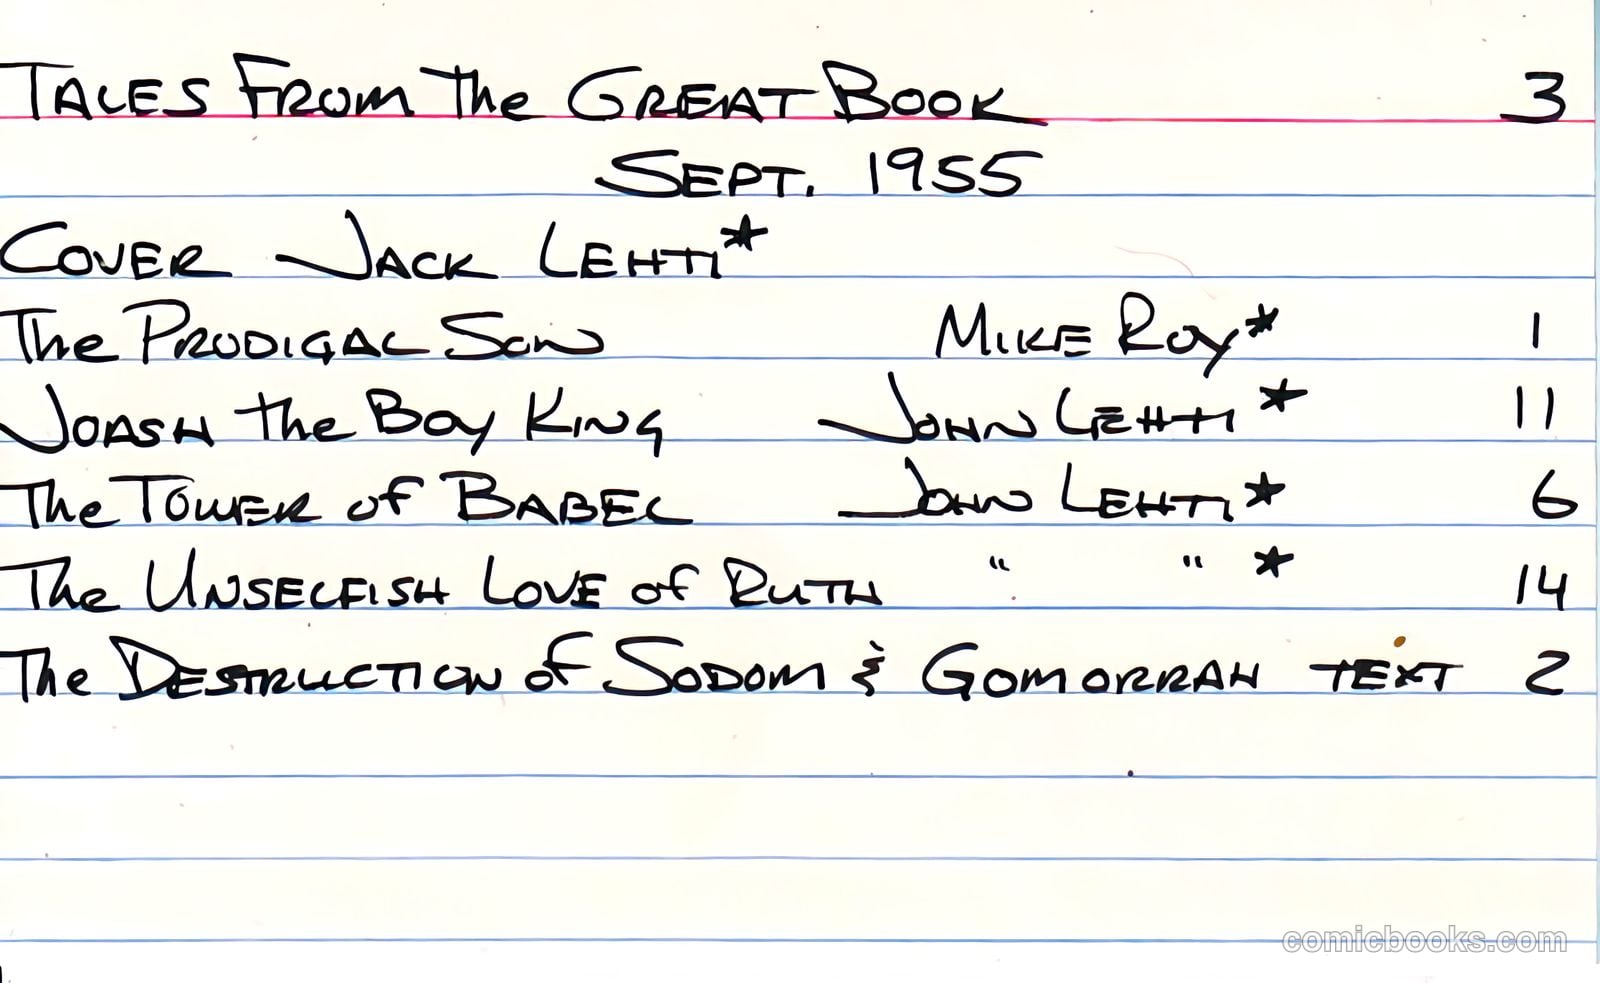 TALES FROM The GREAT BOOK 3
SEPT. 1955
COVER JACK LEHTI*
The PRODIGAL SON MIKE ROY* 1
JOASH the BOY KING JOHN LEHTI* 11
The TOWER of BABEL JOHN LEHTI* 6
The UNSELFISH LOVE of RUTH " " * 14
The DESTRUCTION of SODOM & GOMORRAH TEXT 2
comicbooks.com